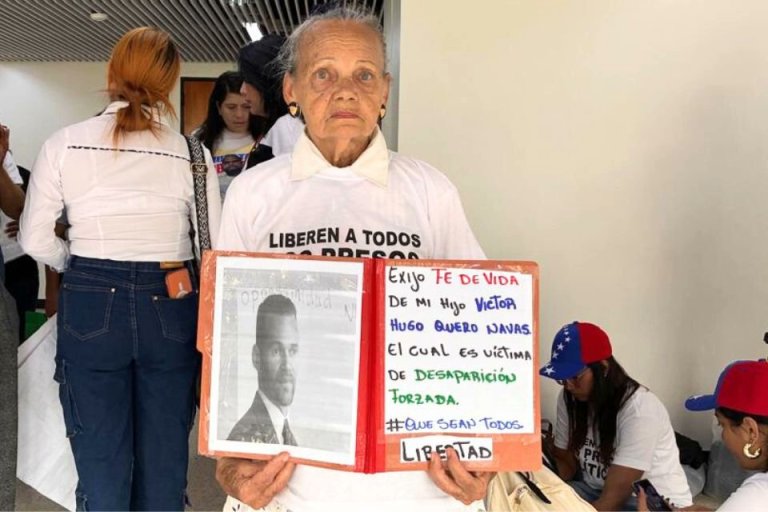 LIBEREN A TODOS
LOS PRESOS
oportunidad
EXIJO FE DE VIDA
DE MI HIJO VICTOR
HUGO QUERO NAVAS.
EL CUAL ES VÍCTIMA
DE DESAPARICIÓN
FORZADA.
#QUE SEAN TODOS.
LIBERTAD